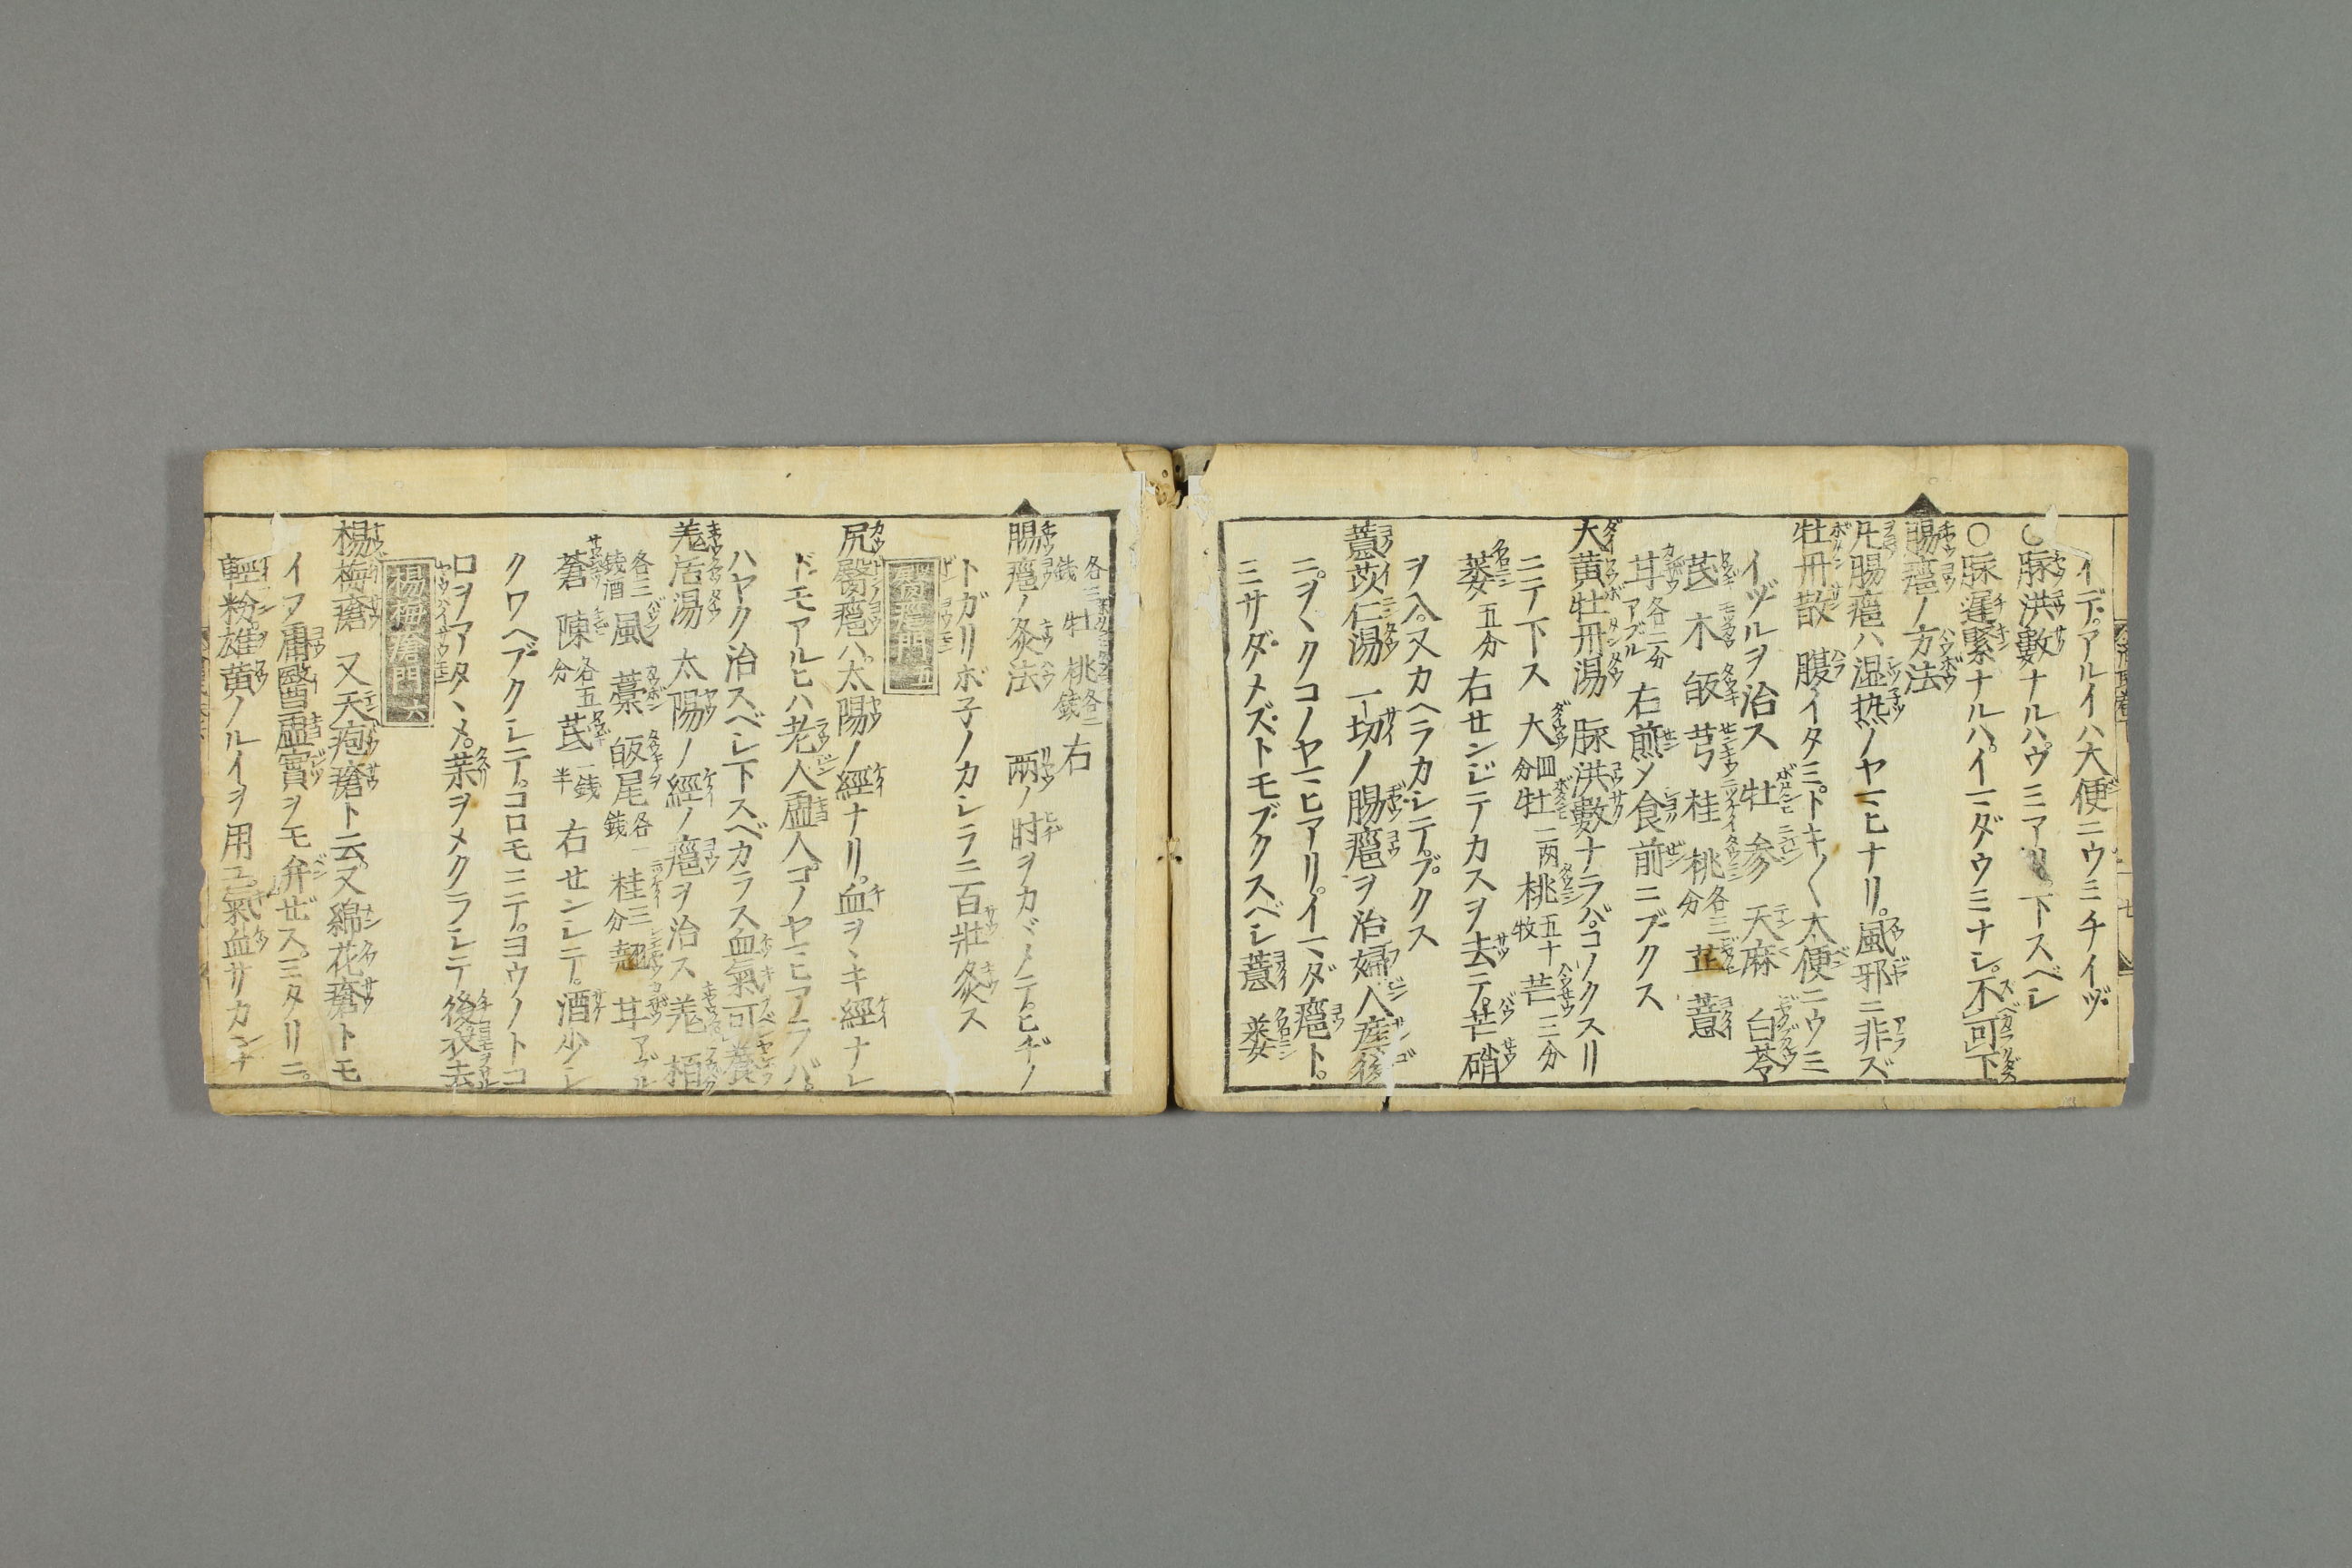 イデ。アルイハ大便ニウミチイヅ
○脉洪數ナルハ。ウミアリ。下スベシ
○脉遲緊ナルハ。イマダウミナシ。不可下
腸癰ノ方法
凡腸癰ハ湿热ノヤマヒナリ。風邪ニ非ズ
牡丹散 腹イタミ。トキ〱大便ニウミ
イヅルヲ治ス 牡 参 天麻 白苓
芪 木 皈 芎 桂 桃各三分 芷 薏
耳各二分アブル 右煎メ食前ニブクス
大黄牡丹湯 脉洪數ナラバ。コノクスリ
ニテ下ス 大四分 牡二两 桃五十牧 芒三分
蒌五分 右せンジテカスヲ去テ。芒硝
ヲ入。又カヘラカシテ。ブクス
薏苡仁湯 一切ノ腸癰ヲ治婦人産後
ニ。ヲヽクコノヤマヒアリ。イマダ癰ト。
ミサダメズトモブクスベシ 薏 蒌
各三銭 牡 桃各二銭 右
腸癰ノ灸法 兩ノ肘ヲカヾメテ。ヒヂノ
トガリボ子ノカシラ三百壯灸ス
臀癰門五
尻臀癰ハ。太陽ノ經ナリ。血ヲヽキ經ナレ
ドモ。アルヒハ老人虚人。コノヤマヒアラバ。
ハヤク治スベシ下スベカラス血氣可養
羗活湯 太陽ノ經ノ癰ヲ治ス 羗 栢
各三銭酒 風 藁 皈尾各一銭 桂三分 翹 耳アブル
蒼 陳各五分 芪一銭半 右せンシテ。酒少シ
クワヘブクシテ。コロモニテ。ヨウノトコ
ロヲアタヽメ。薬ヲメクラシテ後衣去
楊梅瘡門六
楊梅瘡 又天疱瘡ト云。又綿花瘡トモ
イフ庸醫虚實ヲモ弁ぜス。ミタリニ。
輕粉雄黄ノルイヲ用ユ。氣血サカンナ